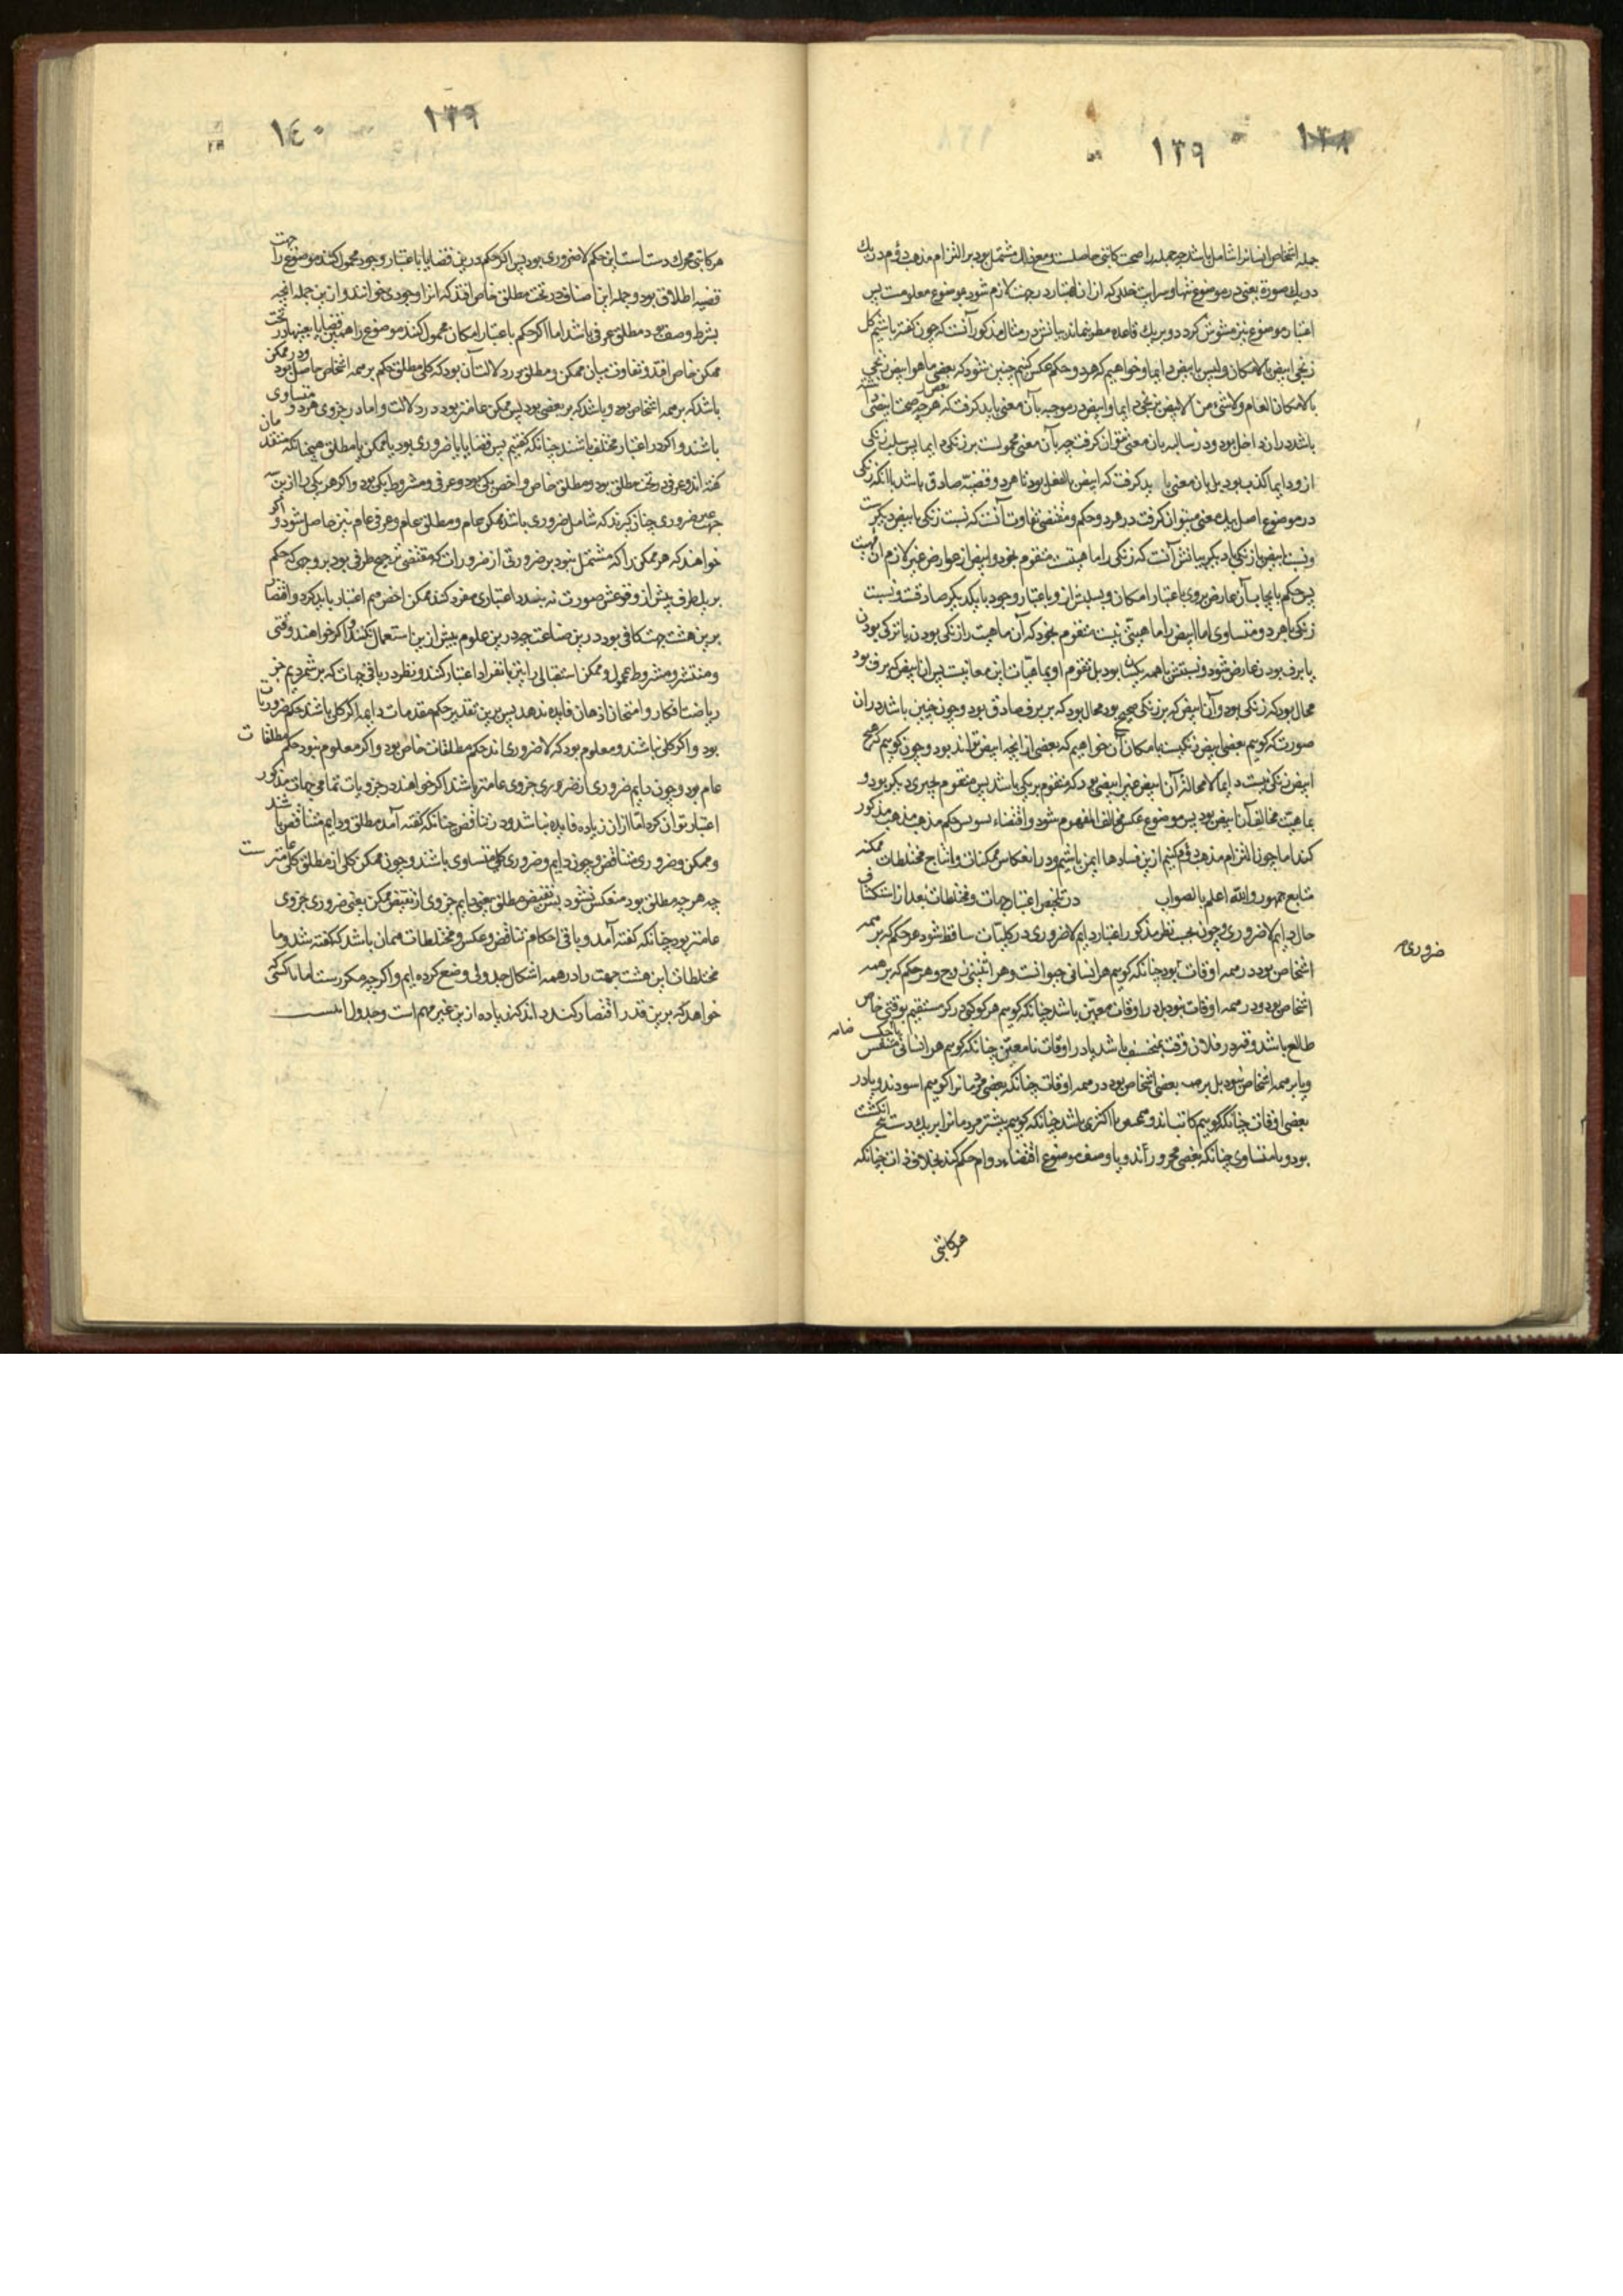 ۱۳۸
۱۳۹
جمله اشخاص انسانرا شامل باشد چه جمله را صحت کاتبی حاصلست ومع ذلک مشتمل بود بر التزام مذهب دوم در یک
در یک صورة یعنی در موضوع تنها و سرایت خللی که از آن اعتبار در جهت لازم شود بموضوع معلومست پس
اعتبار موضوع نیز مشوش گردد و بر یک قاعده مطرد نماند بیانش در مثال مذکور آنست که چون گفته باشیم کل
زنجی ابیض بالامکان ولیس بابیض دایما وخواهیم که هر دو حکم عکس کنیم چنین شود که بعضی ماهو ابیض زنجی
بالامکان العام ولاشئ من الابیض بزنجی دایما وابیض در موجبه بآن معنی باید گرفت که هرچه صحت ابیضی
باشد در آن داخل بود ودر سالبه بآن معنی نتوان گرفت چه بآن معنی محمولست بر زنگی دایما پس سلب زنگی
ازو دایما کذب بود بل بآن معنی باید گرفت که ابیض بالفعل بود تا هر دو قضیه صادق باشد با آنکه زنگی
در موضوع اصل بیک معنی میتوان گرفت در هر دو حکم ومقتضی تفاوت آنست که نسبت زنگی با ابیض دیگرست
ونسبت ابیض با زنگی دیگر بیانش آنست که زنگی را ماهیتست متقوم بخود وابیض از عوارض غیر لازم آن ماهیت
پس حکم بایجاب آن عارض بروی باعتبار امکان وبسلبش ازو باعتبار وجود با یکدیگر صادقست ونسبت
زنگی با هر دو متساوی اما ابیض را ماهیتی نیست متقوم بخود که آن ماهیت را زنگی بودن یا ترکی بودن
یا برف بودن عارض شود ونسبتش با همه یکسان بود بل تقوم او بماهیات این معانیست پس آن ابیض که برف بود
محال بود که زنگی بود وآن ابیض که بر زنگی صحیح بود محال بود که بر برف صادق بود وچون چنین باشد در آن
صورت که گوییم بعضی ابیض زنگیست بامکان آن خواهیم که بعضی از آنچه ابیض تواند بود وچون گوییم که هیچ
ابیض زنگی نیست دایما لامحاله آن ابیض غیر ابیضی بود که متقوم بزنگی باشد پس متقوم بچیزی دیگر بود و
بماهیت مخالف آن ابیض بود پس موضوع عکس مخالف المفهوم شود واقتضاء
کند اما چون التزام مذهب دوم کنیم ازین فسادها ایمن باشیم ودر انعکاس ممکنات وانتاج مختلطات ممکنه
متابع جمهور والله اعلم بالصواب در تلخیص اعتبار جهات ومختلطات بعد از استکشاف
حال دایم لاضروری وچون بحسب نظر مذکور اعتبار دایم لاضروری در کلیات ساقط شود هر حکم که بر همه
ضروری
اشخاص بود در همه اوقات بود چنانکه گوییم هر انسانی حیوانست وهر اثنینی زوج وهر حکم که بر همه
اشخاص بود ودر همه اوقات نبود یا در اوقات معین باشد چنانکه گوییم هر کوکبی در کره مستقیم بوقتی خاص
طالع باشد وقمر در فلان وقت منخسف باشد یا در اوقات نامعین چنانکه گوییم هر انسانی متنفس
ویا بر همه اشخاص نبود بل بر بعضی اشخاص بود در همه اوقات چنانکه بعضی مردمانرا گوییم اسودند ویا در
بعضی اوقات چنانکه گوییم کاتب‌اند وبعضی یا اکثری باشد چنانکه گوییم بیشتر مردمانرا بر یک دست پنج انگشت
بود ویا متساوی چنانکه بعضی محرورند ویا وصف موضوع اقتضاء دوام حکم کند بخلاف ذات چنانکه
هر کاتبی
۱۳۹
۱٤۰
هر کاتبی محرک دستست این حکم لاضروری بود پس اگر حکم درین قضایا باعتبار وجود محمول کنند موضوع را جهت
قضیه اطلاق بود وجمله این اصناف در تحت مطلق خاص افتد که آنرا وجودی خوانند وازین جمله آنچه
بشرط وصف بود مطلق عرفی باشد اما اگر حکم باعتبار امکان محمول کنند موضوع را همین قضایا بعینها در تحت
ممکن خاص افتد وتفاوت میان ممکن ومطلق در دلالت آن بود که کلی مطلق حکم بر همه اشخاص حاصل بود ودر ممکن
باشد که بر همه اشخاص بود وباشد که بر بعضی بود پس ممکن عامتر بود در دلالت واما در جزوی هر دو متساوی
باشند واگر در اعتبار مختلف باشند چنانکه گفتیم پس قضایا یا ضروری بود یا ممکن یا مطلق همچنانکه متقدمان
گفته‌اند وعرفی در تحت مطلق بود ومطلق خاص واخص یکی بود وعرفی ومشروط یکی بود واگر هر یکی را ازین
جهت غیر ضروری چنان گیرند که شامل ضروری باشد ممکن عام ومطلق عام وعرفی عام نیز حاصل شود واگر
خواهند که هر ممکن را که مشتمل نبود بر ضرورتی از ضرورات که مقتضی ترجیح طرفی بود بر وجهی که حکم
بر یک طرف پیش از وقوعش صورت نه بندد اعتباری مفرد کنند ممکن اخص هم اعتبار باید کرد واقتصار
برین هشت جهت کافی بود درین صناعت چه درین علوم بیش ازین استعمال نکنند واگر خواهند وقتی
ومنتشر ومشروط بمحمول وممکن استقبالی را نیز بانفراد اعتبار کنند ونظر در باقی جهات که بر شمردیم جز
ریاضت افکار وامتحان اذهان فایده ندهد پس برین تقدیر حکم مقدمات دایمه اگر کلی باشند حکم ضروریات
بود واگر کلی نباشند ومعلوم بود که لاضروری‌اند حکم مطلقات خاص بود واگر معلوم نبود حکم مطلقات
عام بود وچون دایم ضروری از ضروری جزوی عامتر باشد اگر خواهند در جزویات تمامی جهات مذکور
اعتبار توان کرد اما از آن زیاده فایده نباشد ودر تناقض چنانکه گفته آمد مطلق ودایم متناقض باشند
وممکن وضروری متناقض وچون دایم وضروری کلی متساوی باشند وچون ممکن کلی از مطلق کلی عامترست
چه هرچه مطلق بود منعکس نشود پس نقیض مطلق یعنی دایم جزوی از نقیض ممکن یعنی ضروری جزوی
عامتر بود چنانکه گفته آمد وباقی احکام تناقض وعکس ومختلطات همان باشد که گفته شد وما
مختلطات این هشت جهت را در همه اشکال جدولی وضع کرده‌ایم واگرچه مکررست اما تا کسی
خواهد که برین قدر اقتصار کند داند که زیاده ازین غیر مهم است وجدول اینست